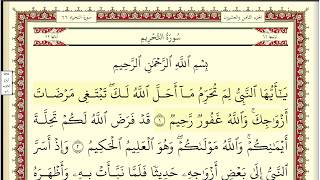 سُورَةُ التَّحْرِيمِ
بِسْمِ اللَّهِ الرَّحْمَٰنِ الرَّحِيمِ
يَٰٓأَيُّهَا ٱلنَّبِىُّ لِمَ تُحَرِّمُ مَآ أَحَلَّ ٱللَّهُ لَكَ ۖ تَبْتَغِى مَرْضَاتَ
أَزْوَٰجِكَ ۚ وَٱللَّهُ غَفُورٌ رَّحِيمٌ ١ قَدْ فَرَضَ ٱللَّهُ لَكُمْ تَحِلَّةَ
أَيْمَٰنِكُمْ ۚ وَٱللَّهُ مَوْلَىٰكُمْ ۖ وَهُوَ ٱلْعَلِيمُ ٱلْحَكِيمُ ٢ وَإِذْ أَسَرَّ
ٱلنَّبِىُّ إِلَىٰ بَعْضِ أَزْوَٰجِهِۦ حَدِيثًا فَلَمَّا نَبَّأَتْ بِهِۦ وَأَظْهَرَهُ